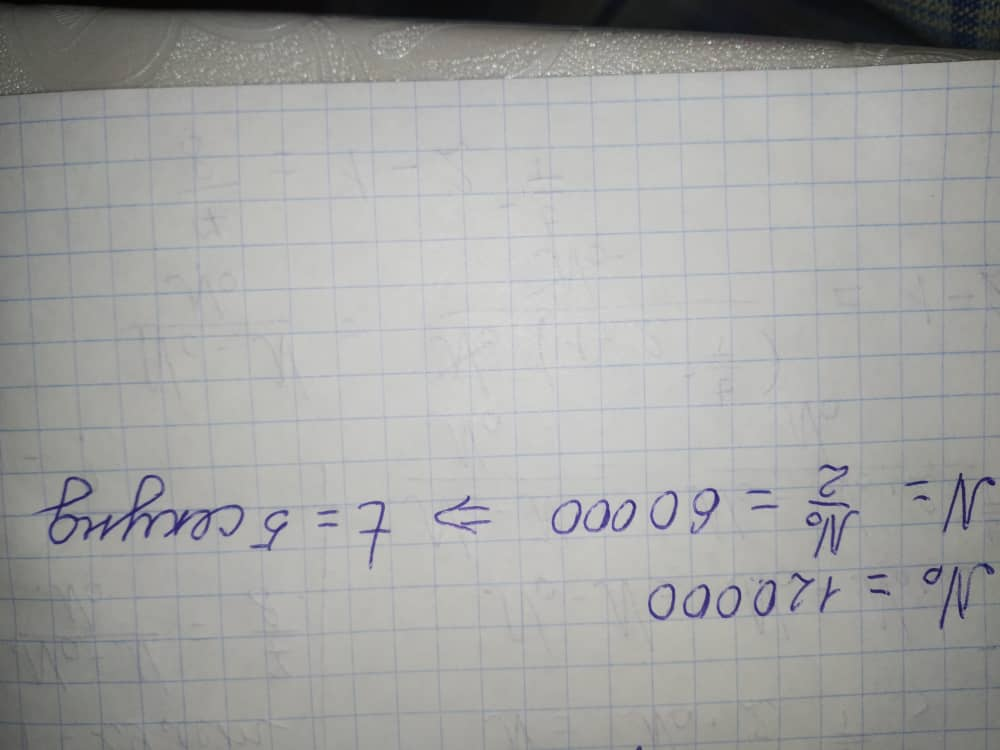 N₀ = 120000
N = N₀/2 = 60000 ⇒ t = 5 секунд